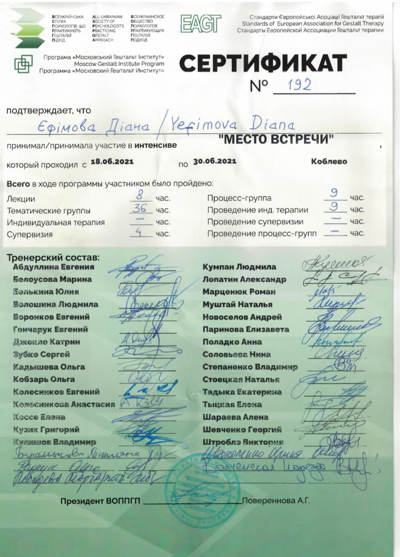 ALL-UKRAINIAN
SOCIETY OF
PSYCHOLOGISTS
PRACTICING
GESTALT
APPROACH
ВСЕУКРАИНСКОЕ
ОБЩЕСТВО
ПСИХОЛОГОВ
ПРАКТИКУЮЩИХ
ГЕШТАЛЬТ
ПОДХОД
EAGT
Стандарти Європейської Асоціації Гештальт терапії
Standards of European Association for Gestalt Therapy
Стандарты Европейской Ассоциации Гештальт терапии
Програма «Московський Гештальт Інститут»
Moscow Gestalt Institute Program
Программа «Московский Гештальт Институт»
СЕРТИФИКАТ
№ 192
подтверждает, что
Єфімова Діана / Yefimova Diana
принимал/принимала участие в интенсиве "МЕСТО ВСТРЕЧИ"
который проходил с 18.06.2021 по 30.06.2021 Коблево
Всего в ходе программы участником было пройдено:
Лекции 8 час.
Тематические группы 36 час.
Индивидуальная терапия — час.
Супервизия 4 час.
Процесс-группа 9 час.
Проведение инд. терапии 9 час.
Проведение супервизии — час.
Проведение процесс-групп — час.
Тренерский состав:
Абдуллина Евгения
Белоусова Марина
Валькина Юлия
Волошина Людмила
Воронков Евгений
Гончарук Евгений
Джолле Катрин
Зубко Сергей
Кадышева Ольга
Кобзарь Ольга
Колесников Евгений
Колосникова Анастасия
Коссе Елена
Кузик Григорий
Куликов Владимир
Кумпан Людмила
Лопатин Александр
Марценюк Роман
Муштай Наталья
Новоселов Андрей
Паринова Елизавета
Поладко Анна
Соловьева Нина
Степаненко Владимир
Стоецкая Наталья
Тадыка Екатерина
Тыцкая Елена
Шараева Алена
Шевченко Георгий
Штробля Виктория
Президент ВОППГП
Повереннова А.Г.